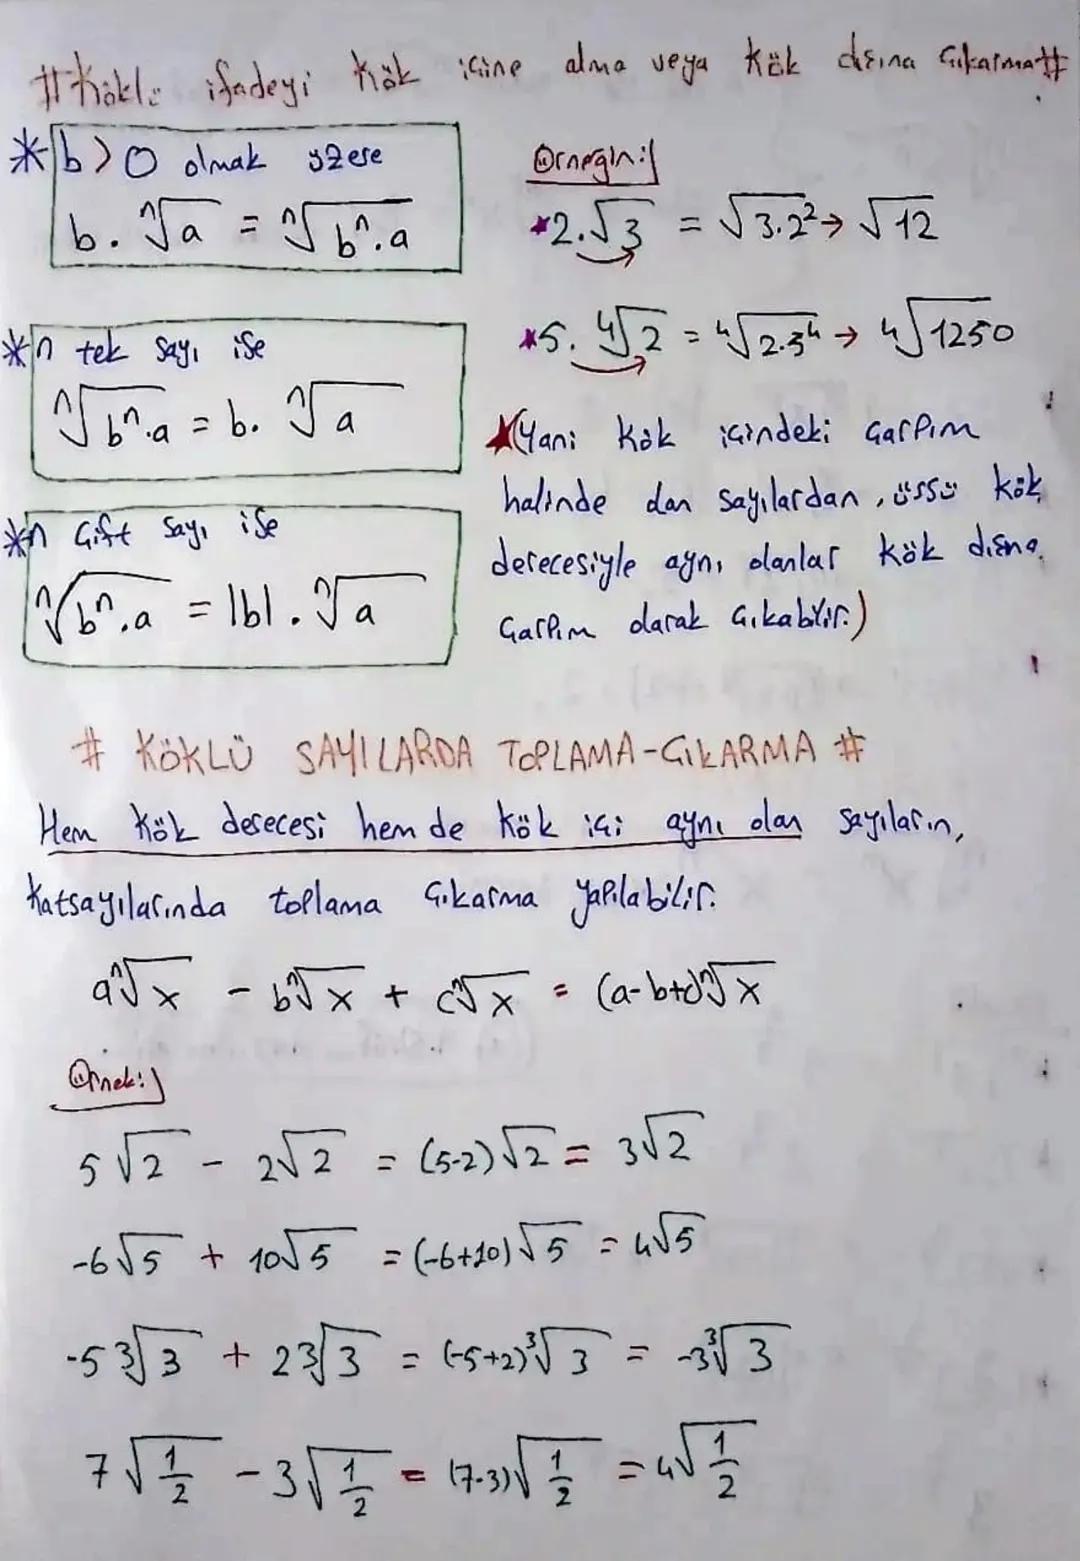 #Köklü ifadeyi Kök içine alma veya Kök dışına Çıkarma#
*b>0 olmak üzere
b.ⁿ√a = ⁿ√bⁿ.a
*n tek sayı ise
ⁿ√bⁿ.a = b.ⁿ√a
*n Çift sayı ise
ⁿ√bⁿ.a = |b|.ⁿ√a
Örneğin:
*2.√3 = √3.2² → √12
*5.⁴√2 = ⁴√2.5⁴ → ⁴√1250
★(Yani Kök içindeki Çarpım
halinde olan sayılardan, üssü kök
derecesiyle aynı olanlar kök dışına
Çarpım olarak Çıkabilir.)
# KÖKLÜ SAYILARDA TOPLAMA-ÇIKARMA #
Hem kök derecesi hem de kök içi aynı olan sayıların,
Katsayılarında toplama Çıkarma yapılabilir.
aⁿ√x - bⁿ√x + cⁿ√x = (a-b+c)ⁿ√x
Örnek:
5√2 - 2√2 = (5-2)√2 = 3√2
-6√5 + 10√5 = (-6+10)√5 = 4√5
-5³√3 + 2³√3 = (-5+2)³√3 = -3³√3
7√1/2 - 3√1/2 = (7-3)√1/2 = 4√1/2